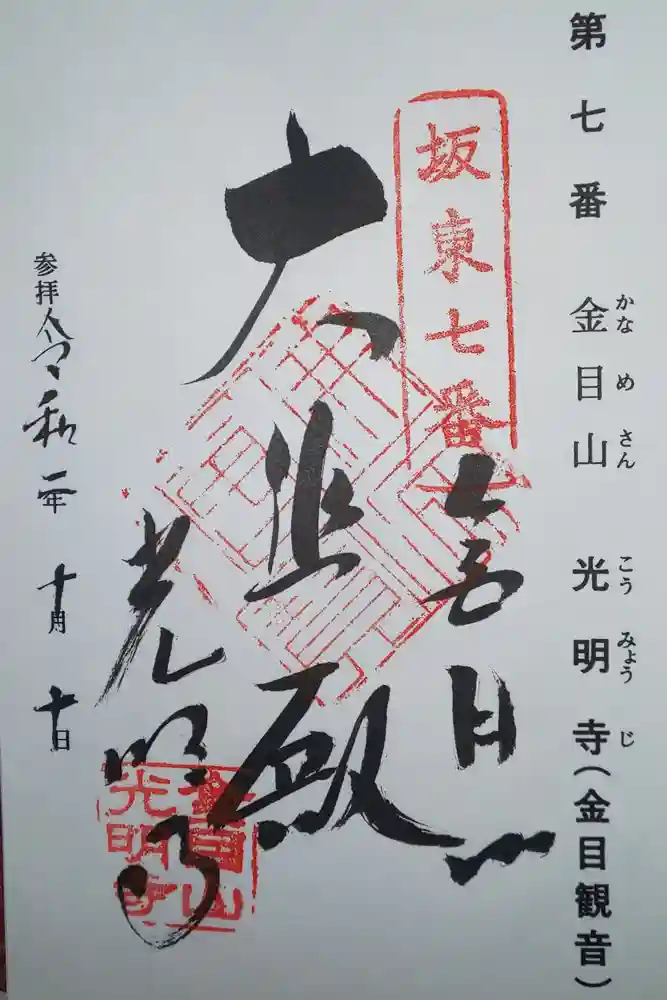 第七番 金目山 光明寺(金目観音)
かな め さん こう みょう じ
坂東七番
金目山
大悲殿
光明寺
金目山
光明寺
参拝 令和二年 十月 十日